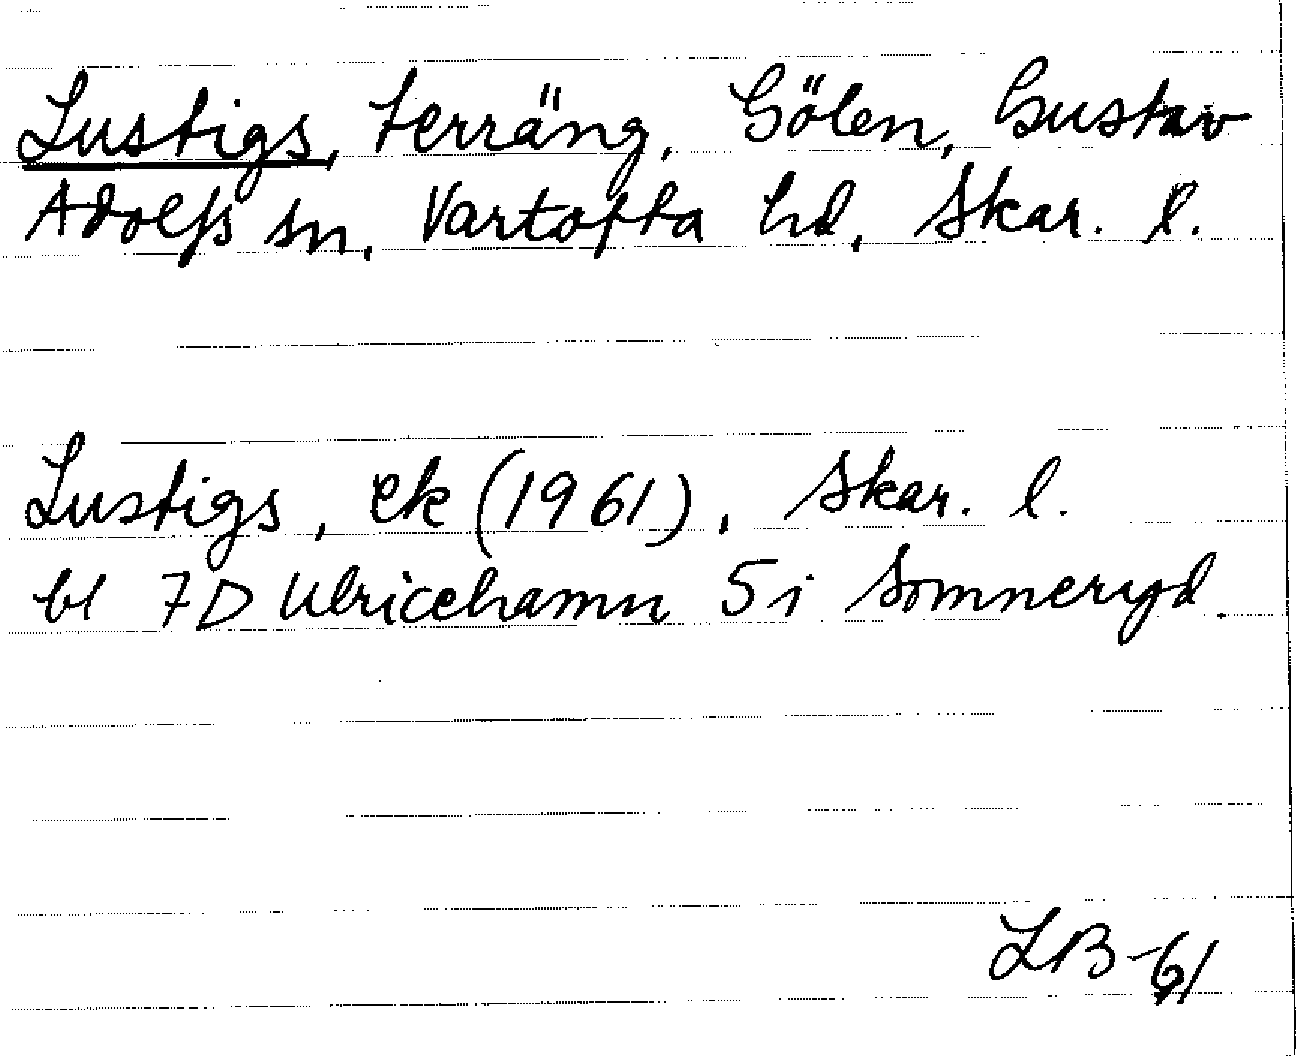 Lustigs, terräng, Gölen, Gustav
Adolfs sn, Vartofta hd, Skar. l.
Lustigs, ek (1961), Skar. l.
bl 7D Ulricehamn 5i Somneryd.
LB-61